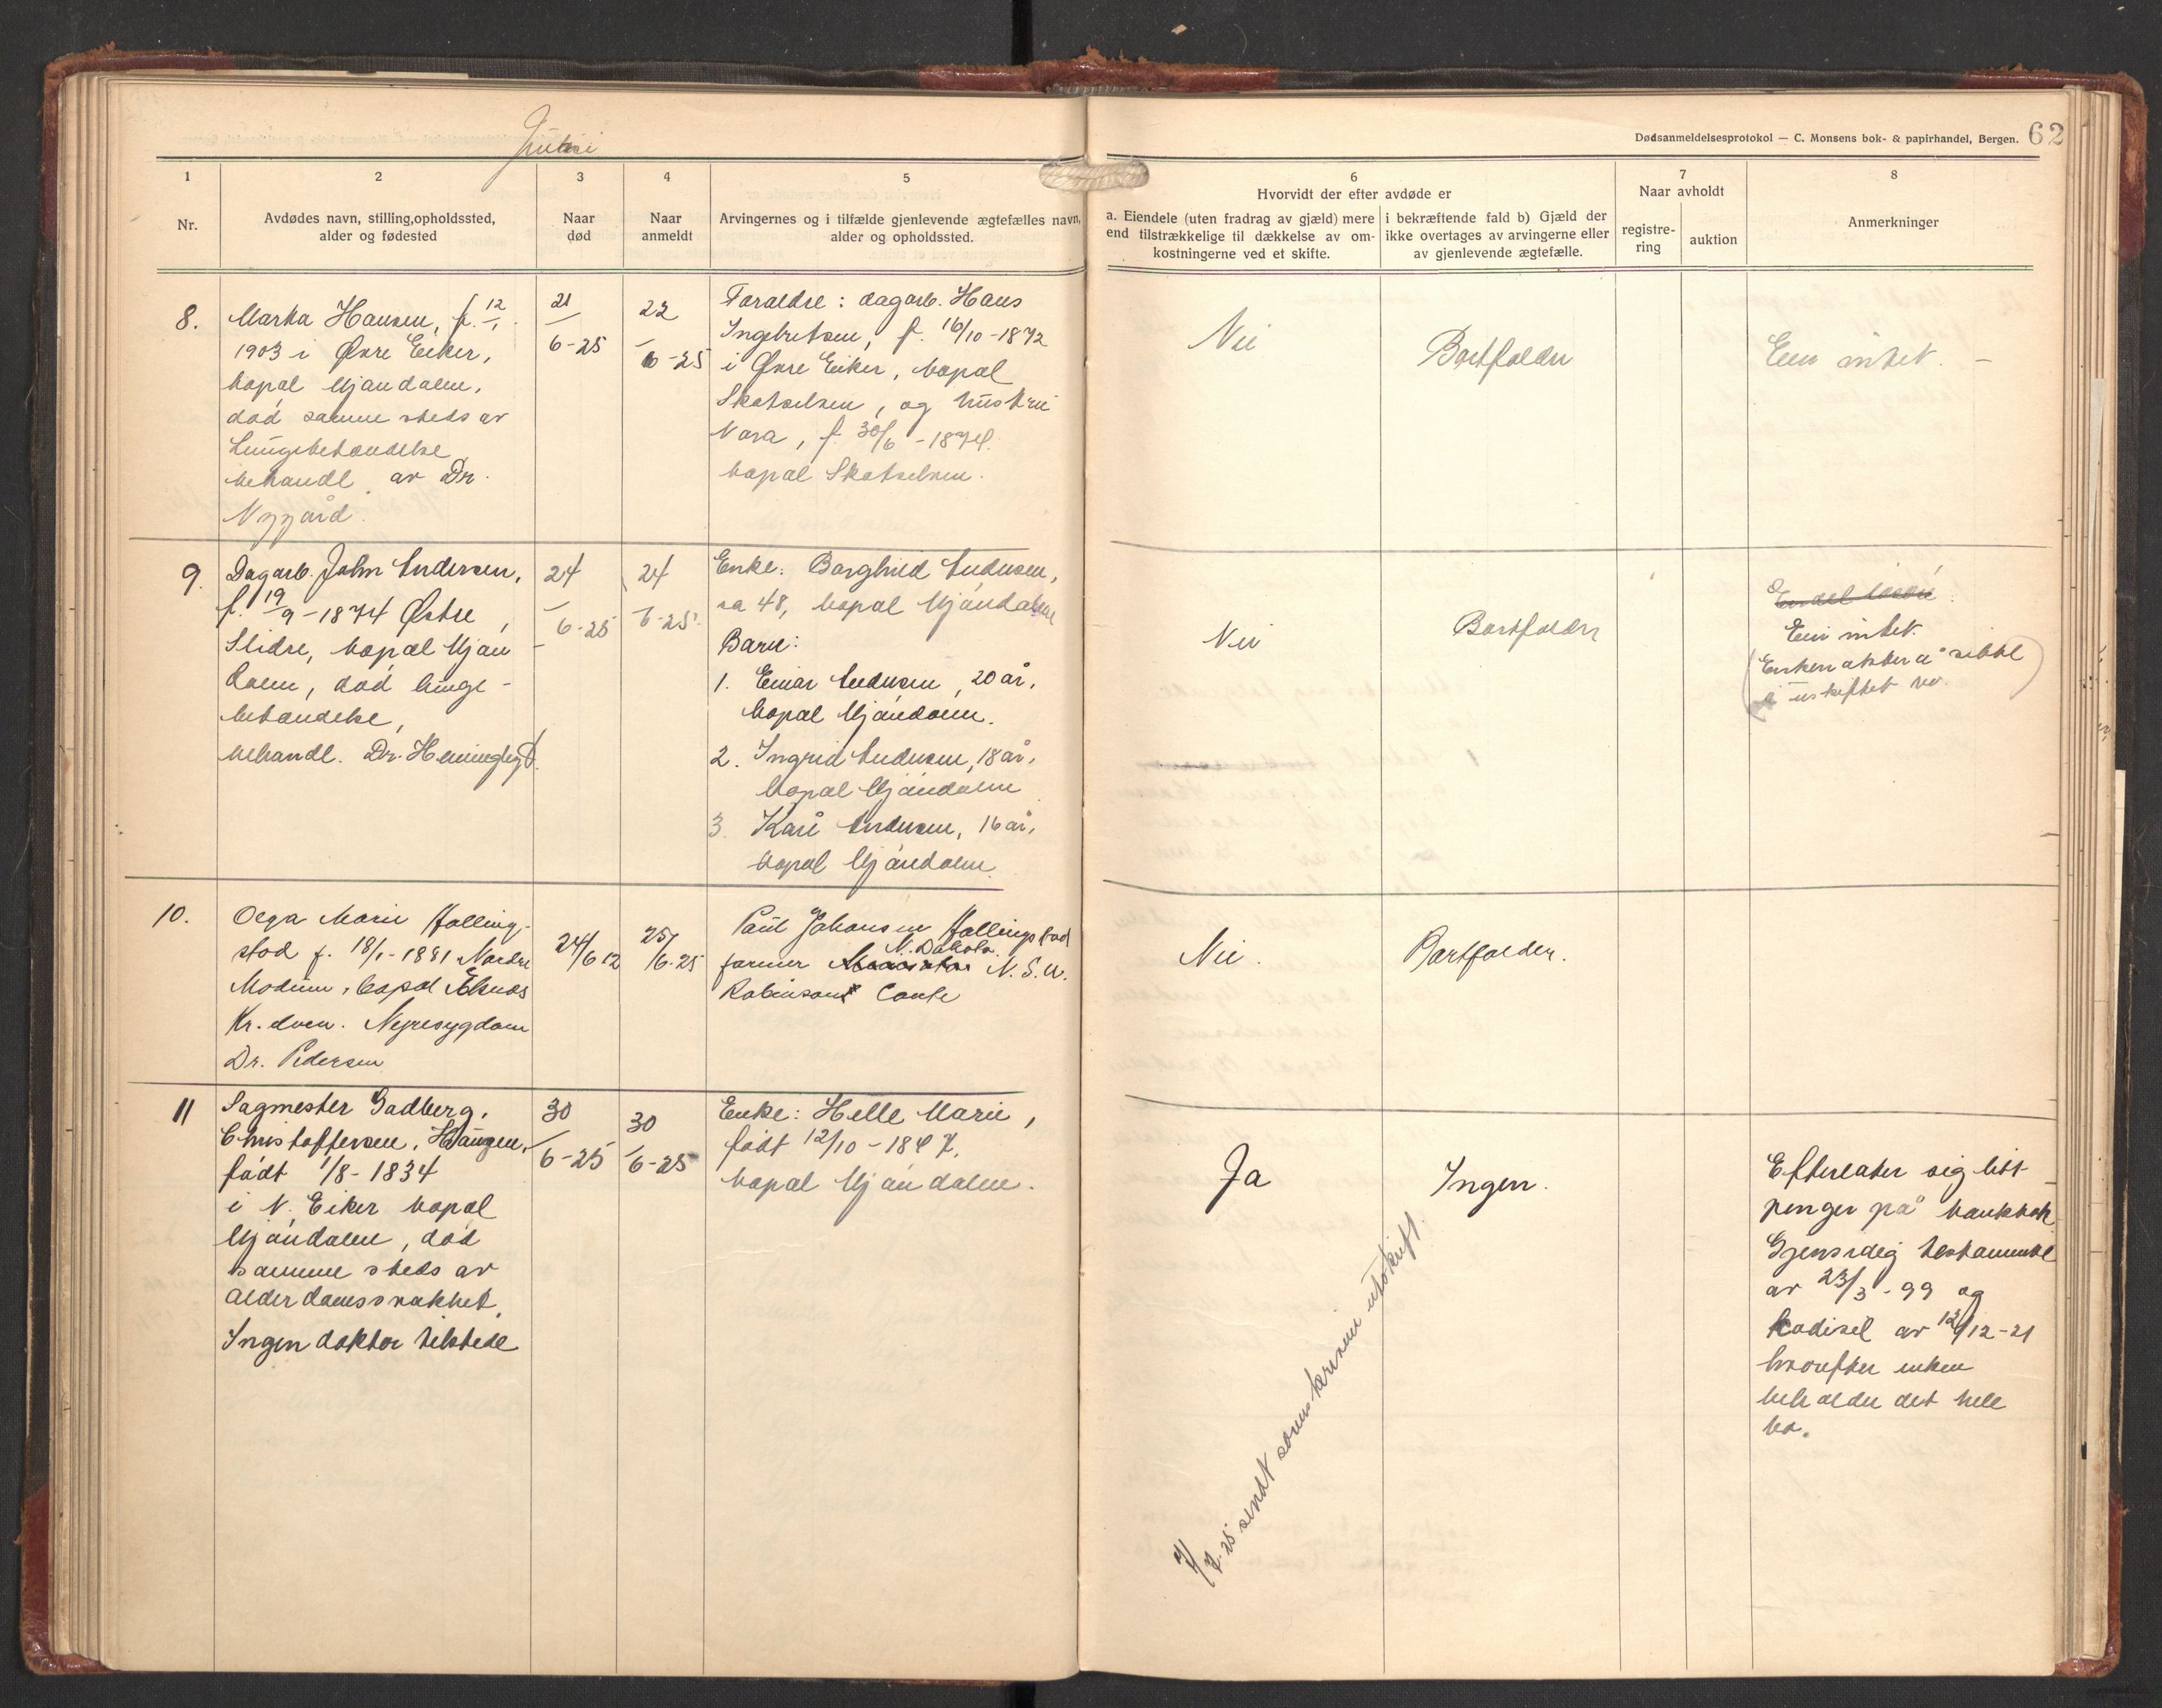 Juni
Dødsanmeldelsesprotokol — C. Monsens bok- & papirhandel, Bergen. 62
1
2
3
4
5
6
7
8
Nr.
Avdødes navn, stilling, opholdssted,
alder og fødested
Naar
død
Naar
anmeldt
Arvingernes og i tilfælde gjenlevende ægtefælles navn,
alder og opholdssted.
Hvorvidt der efter avdøde er
a. Eiendele (uten fradrag av gjæld) mere
end tilstrækkelige til dækkelse av om-
kostningerne ved et skifte.
i bekræftende fald b) Gjæld der
ikke overtages av arvingerne eller
av gjenlevende ægtefælle.
Naar avholdt
registre-
ring
auktion
Anmerkninger
8.
Marta Hansen, f. 12/1
1903 i Øvre Eiker,
bopæl Mjøndalen,
død samme steds av
Lungebetændelse
behandl. av Dr.
Nygård.
21/6-25
22/6-25
Foræeldre: dagarb. Hans
Ingebretsen, f. 16/10-1872
i Øvre Eiker, bopæl
Skotselven, og hustru
Nora, f. 30/6-1874.
bopæl Skotselven.
Nei
Bortfalder
Eier intet. —
9.
Dagarb. John Andersen,
f. 19/9-1874 Østre
Slidre, bopæl Mjøn
dalen, død lunge-
betændelse,
behandl. Dr.
24/6-25
24/6-25.
Enke: Borghild Andersen,
ca 48, bopæl Mjøndalen
Barn:
1. Einar Andersen, 20 år,
bopæl Mjøndalen.
2. Ingrid Andersen, 18 år,
bopæl Mjøndalen
3. Kåre Andersen, 16 år,
bopæl Mjøndalen.
Nei
Bortfalder
Eier intet.
(Enken akter å sitte
i uskiftet bo.)
10.
Olga Marie Halling-
stad f. 18/1-1881 Nordre
Modum, bopæl Eknes
Kr. dven. Nyresygdom
Dr. Pedersen
24/6 12
25/6-25
Paul Johansen Hallingstad
farmer N. Dakota N.S.A.
Robinson Conte
Nei.
Bortfalder.
11
Sagmester Gudberg.
Christoffersen, Haugen,
født 1/8-1834
i N. Eiker bopæl
Mjøndalen, død
samme steds av
Alderdomssvakhet.
Ingen doktor tilstede
30/6-25
30/6-25
Enke: Helle Marie,
født 12/10-1847,
bopæl Mjøndalen.
Ja
Ingen.
7/7-25 sendt sorenskriveren utskrift.
Efterlater sig litt
penger på bankbok
Gjensidig testamente
av 23/3-99 og
Kodisel av 12/12-21
hvorefter enken
beholder det hele
bo.